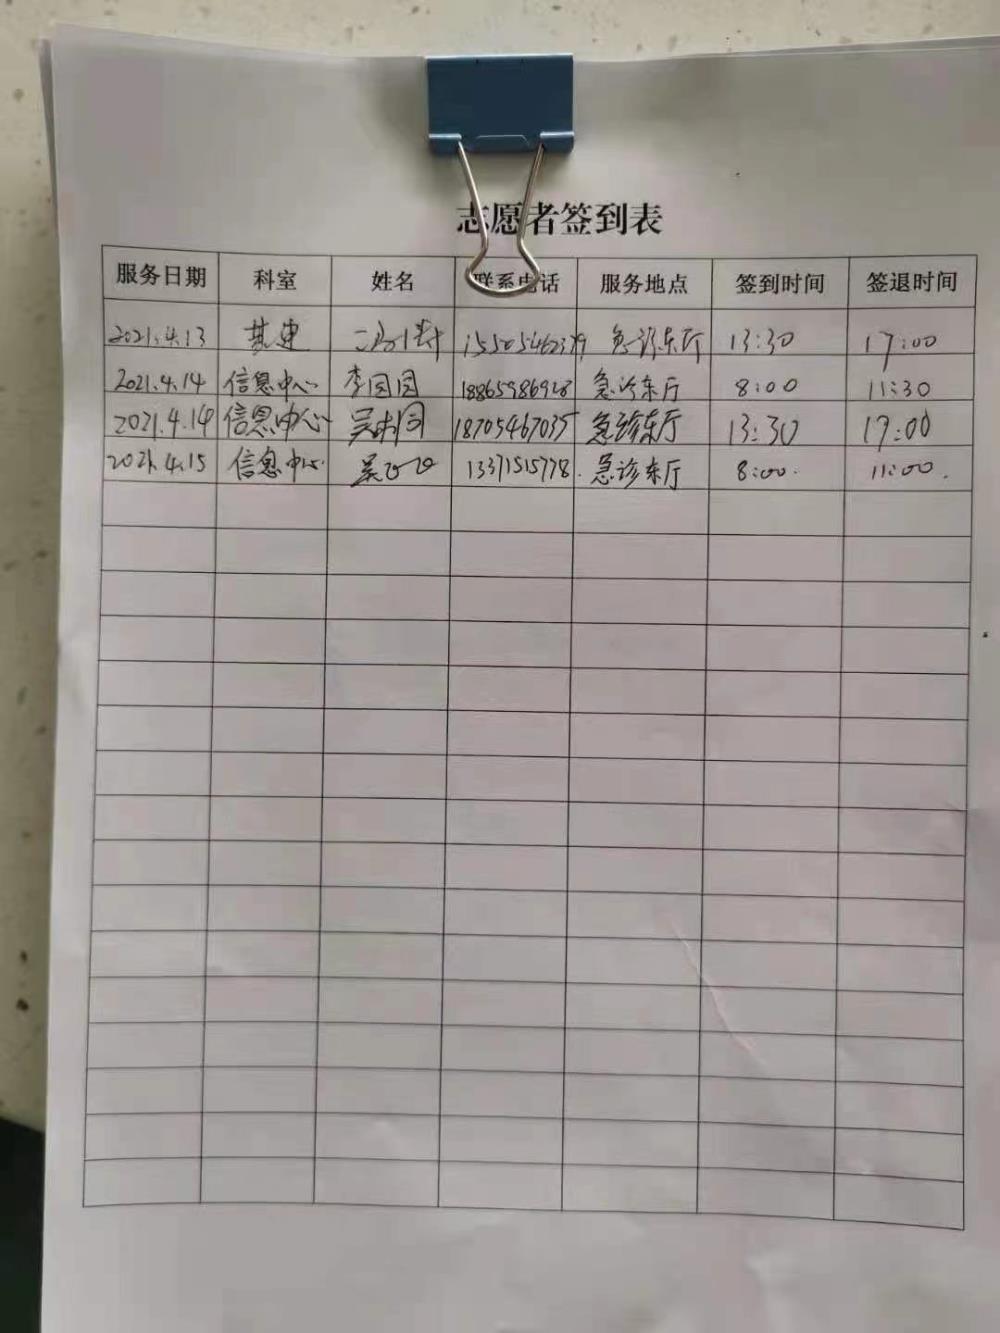 志愿者签到表
服务日期 科室 姓名 联系电话 服务地点 签到时间 签退时间
2021.4.13 基建 15505462379 急诊东厅 13:30 17:00
2021.4.14 信息中心 李园园 18865986928 急诊东厅 8:00 11:30
2021.4.14 信息中心 18705467035 急诊东厅 13:30 17:00
2021.4.15 信息中心 13371515778. 急诊东厅 8:00. 11:00.